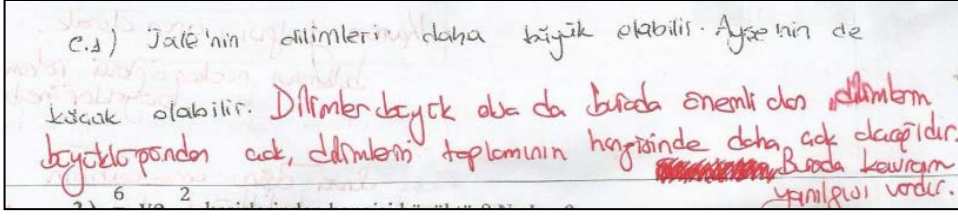 C.1) Jale'nin dilimleri daha büyük olabilir. Ayşe'nin de
küçük olabilir. Dilimler büyük olsa da burada önemli olan dilimlerin
büyüklüğünden çok, dilimlerin toplamının hangisinde daha çok olacağıdır.
Burada kavram
yanılgısı vardır.
6 2
hangisi büyüktür? Neden?